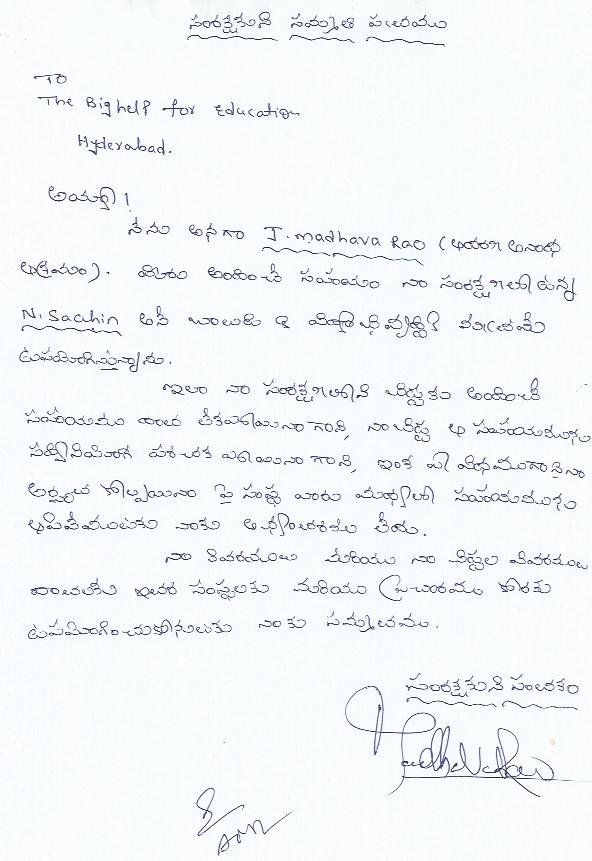 సంరక్షకుని సమ్మతి పత్రము
TO
The Bighelp for Education
Hyderabad.
అయ్యా!
నేను అనగా J. madhava Rao (అభయ అనాథ
ఆశ్రమం). మీరు అందించే సహాయం నా సంరక్షణలో ఉన్న
N. Sachin అనే బాలుడు ని విద్యాభివృద్ధికే మాత్రమే
ఉపయోగిస్తున్నాను.
ఇలా నా సంరక్షణలోని బిడ్డకు అందించే
సహాయము వాడుకోకపోయినా గాని, నా బిడ్డ ఆ సహాయమును
సద్వినియోగ పరచక పోయినా గాని, ఇంకే ఏ విధముగానైనా
అర్హత కోల్పోయినా పై సంస్థ వారు మధ్యలో సహాయమును
ఆపివేయుటకు నాకు అభ్యంతరము లేదు.
నా వివరములు మరియు నా బిడ్డల వివరములు
దాతలకు ఇతర సంస్థలకు మరియు ప్రచారము కొరకు
ఉపయోగించుకొనుటకు నాకు సమ్మతము.
సంరక్షకుని సంతకం
MadhavaRao